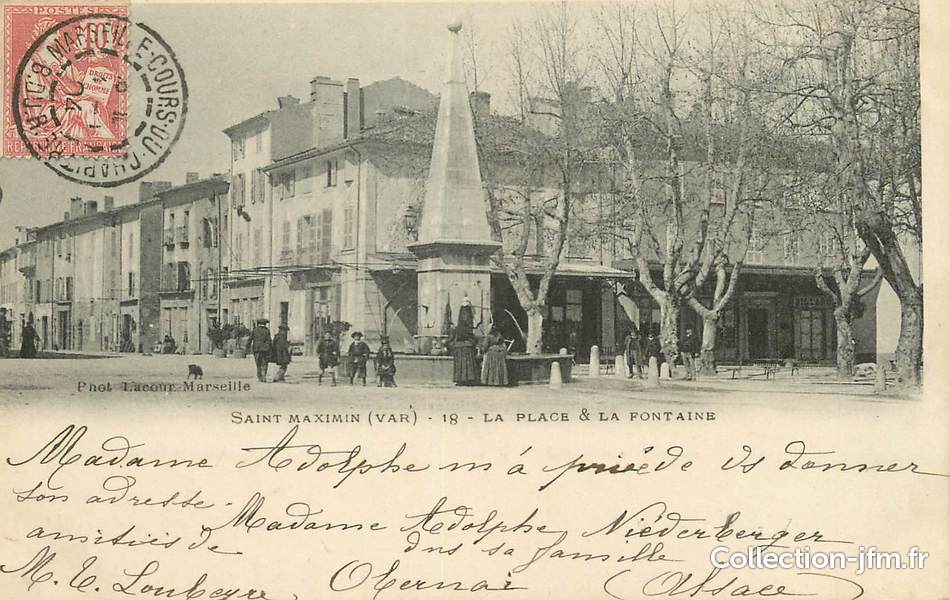 POSTES
10
DROITS DE L'HOMME
REPUBLIQUE FRANÇAISE
MARSEILLE-COURS-DU-CHAPITRE
Phot Lacour Marseille
SAINT MAXIMIN (VAR) - 18 - LA PLACE & LA FONTAINE
Madame Adolphe m'a priée de vs donner
son adresse.
Madame Adolphe Niéderberger
amitiés de
dns sa famille
M. L. Loubeyre
Obernai (Alsace)
Collection-jfm.fr